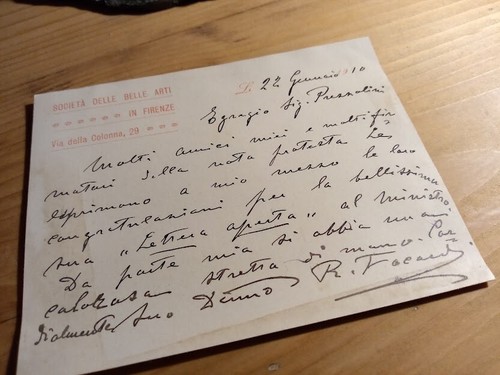 SOCIETÀ DELLE BELLE ARTI
IN FIRENZE
Via della Colonna, 29
Lì 22 Gennaio 1910
Egregio Sig. Prezzolini
Molti amici miei e molti fir
matari della nota protesta Le
esprimono a mio mezzo le loro
congratulazioni per la bellissima
sua "Lettera aperta" al ministro
Da parte mia si abbia una
calorosa stretta di mano. Cor
dialmente Suo Devmo R. Focardi